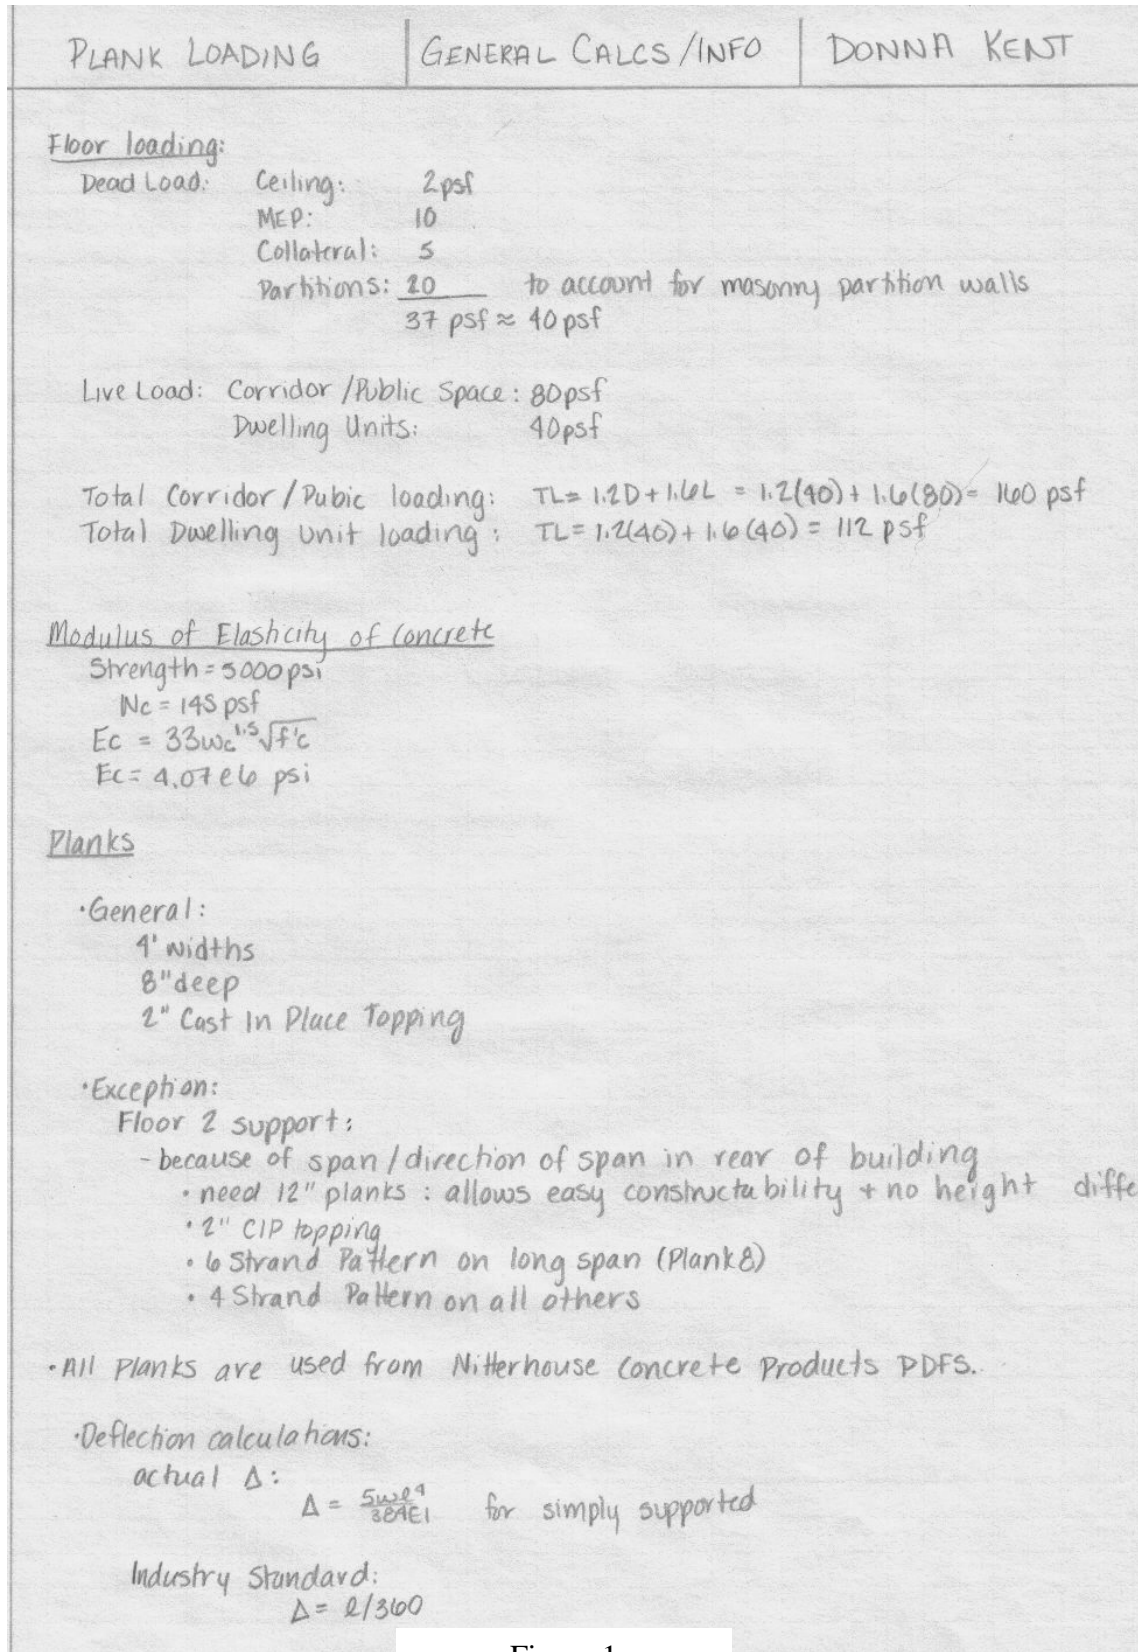 PLANK LOADING GENERAL CALCS/INFO DONNA KENT
Floor loading:
Dead Load: Ceiling: 2psf
MEP: 10
Collateral: 5
Partitions: 20 to account for masonry partition walls
37 psf ≈ 40psf
Live Load: Corridor/Public Space: 80psf
Dwelling Units: 40psf
Total Corridor/Pubic loading: TL= 1.2D+1.6L = 1.2(40)+1.6(80)= 160 psf
Total Dwelling Unit loading: TL= 1.2(40)+1.6(40) = 112 psf
Modulus of Elasticity of Concrete
Strength = 5000psi
Wc = 145 psf
Ec = 33wc^1.5√f'c
Ec= 4.07e6 psi
Planks
•General:
4' widths
8" deep
2" Cast In Place Topping
•Exception:
Floor 2 support:
- because of span/direction of span in rear of building
• need 12" planks: allows easy constructability + no height diffe
• 2" CIP topping
• 6 Strand Pattern on long span (Plank 8)
• 4 Strand Pattern on all others
•All Planks are used from Nitterhouse Concrete Products PDFS.
•Deflection calculations:
actual Δ:
Δ = 5wl^4/384EI for simply supported
Industry Standard:
Δ= l/360